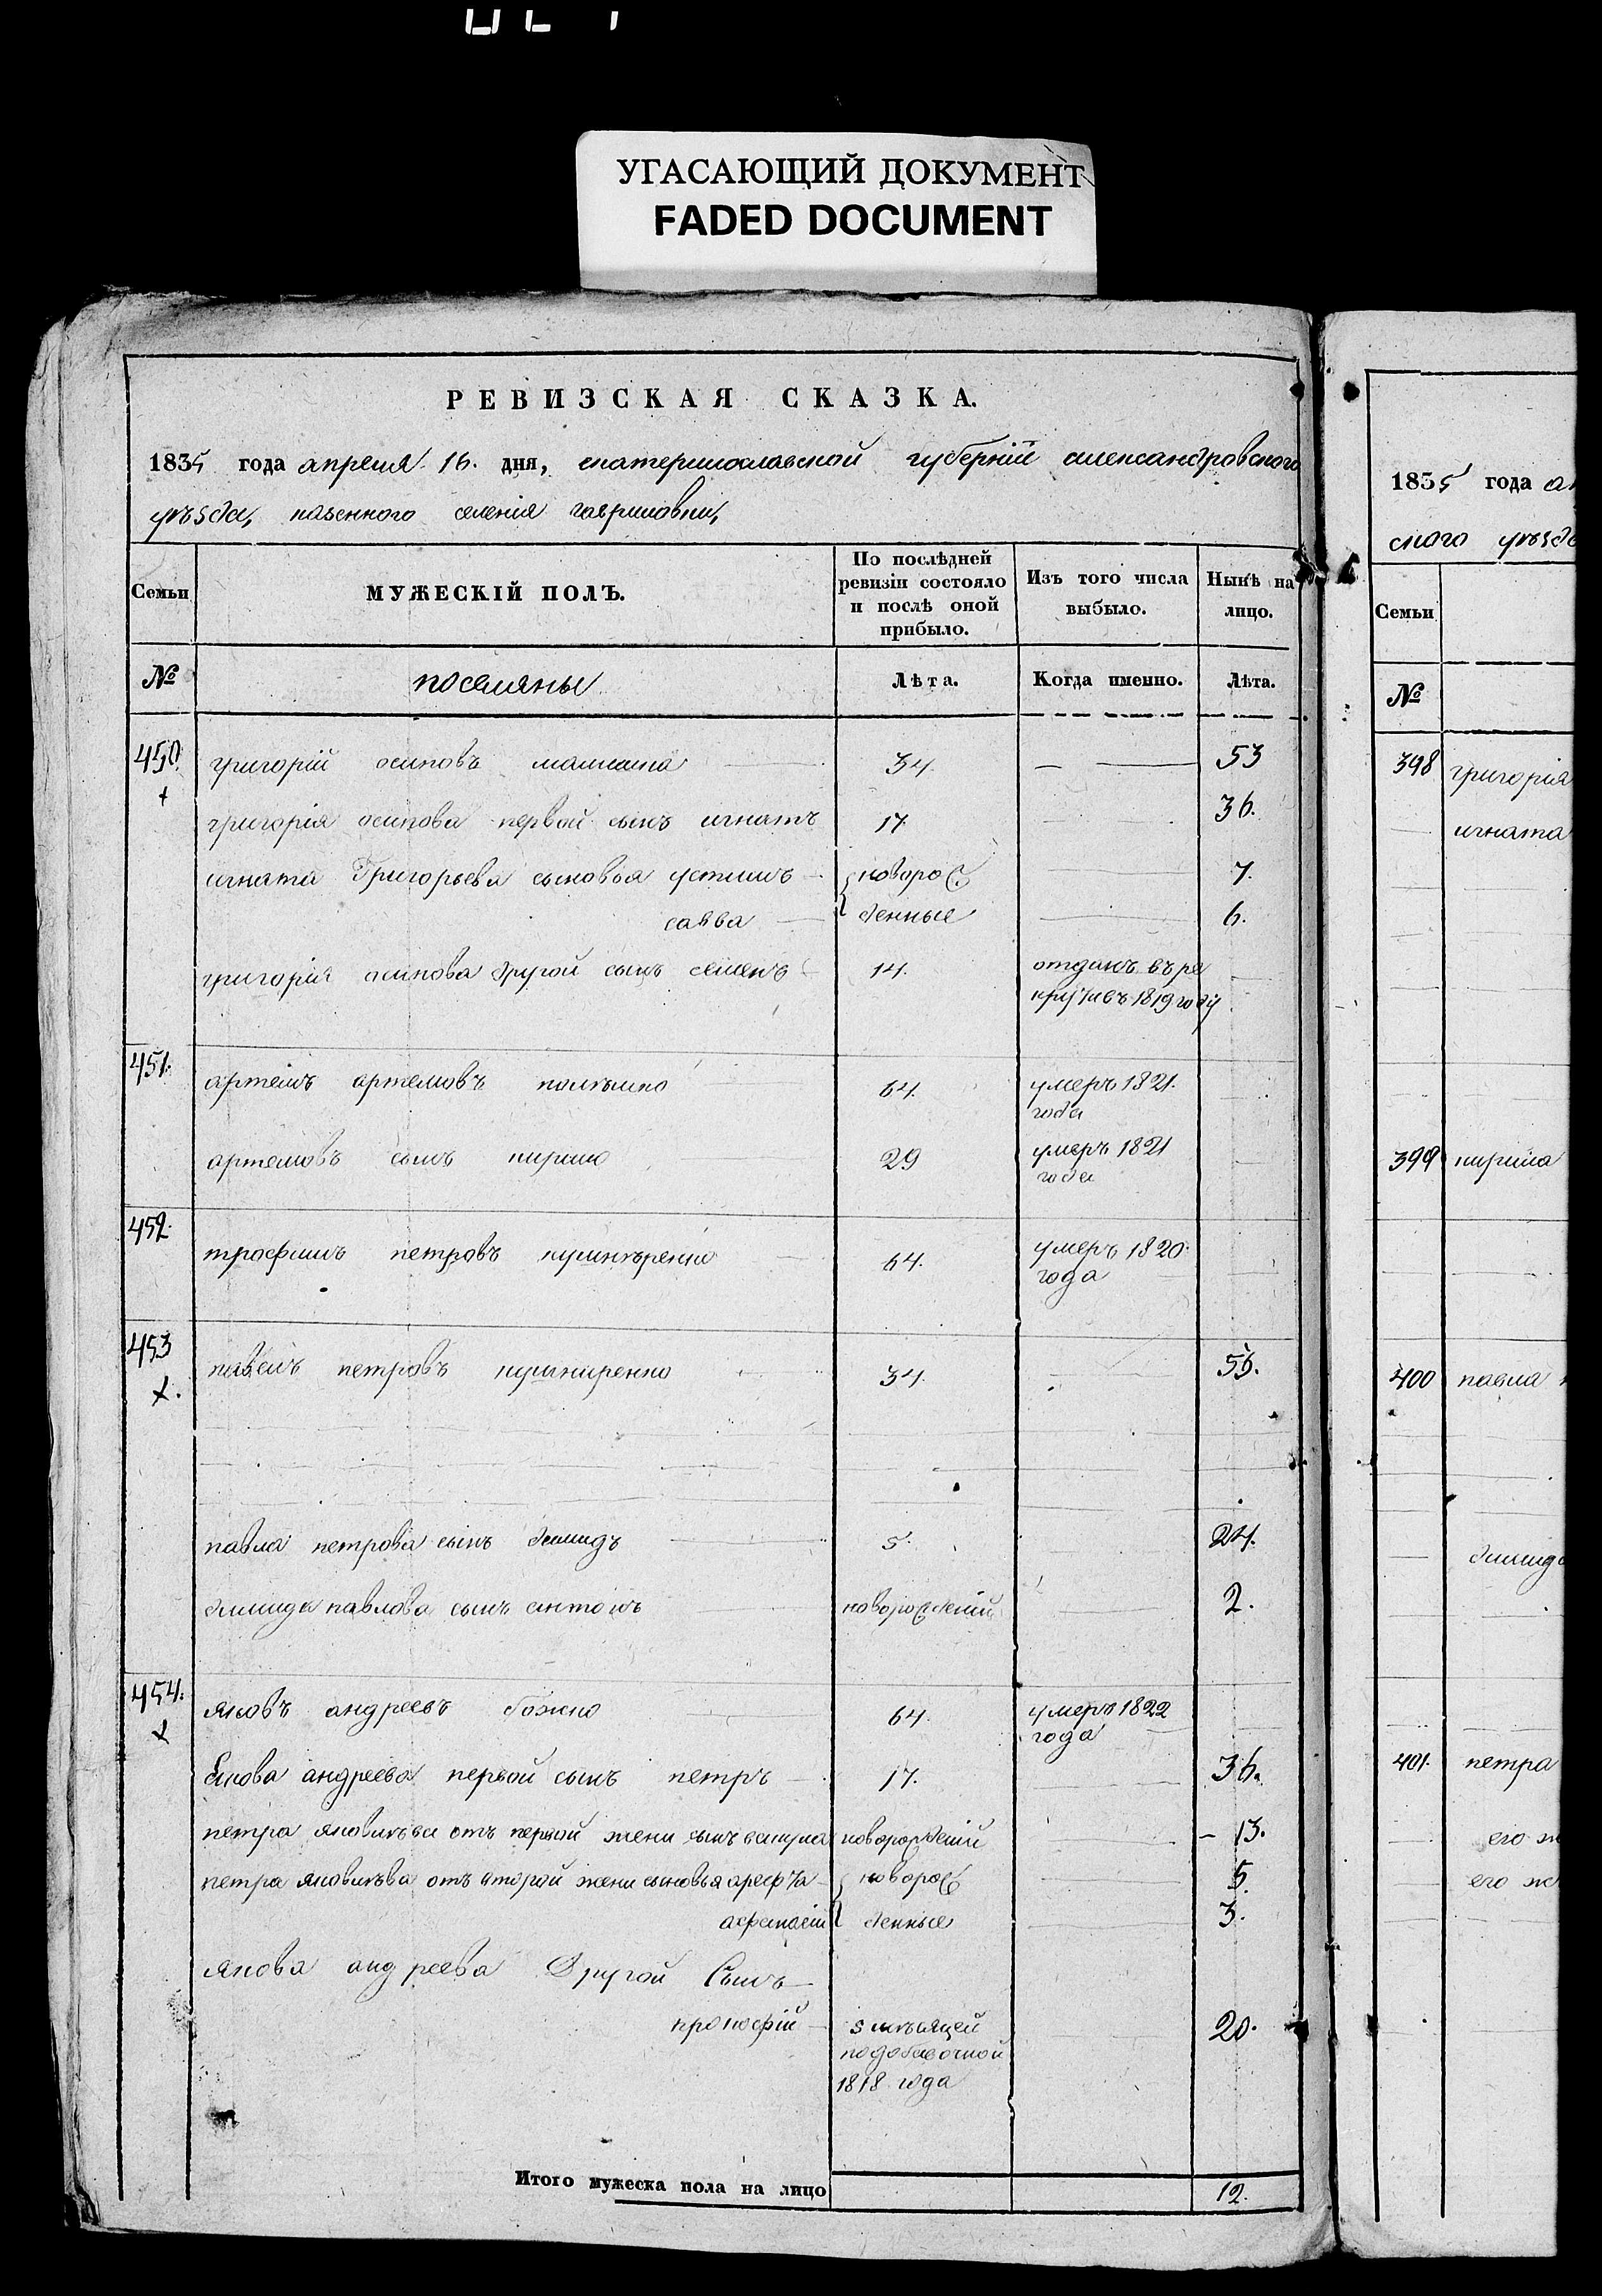 УГАСАЮЩИЙ ДОКУМЕНТ
FADED DOCUMENT
РЕВИЗСКАЯ СКАЗКА.
1835 года апреля 16. дня, екатеринославской губернiй александровского
уѣзда, казенного селенiя гавриловки,
Семьи
МУЖЕСКIЙ ПОЛЪ.
По послѣдней ревизiи состояло и послѣ оной прибыло.
Изъ того числа выбыло.
Нынѣ на лицо.
№ поселяны Лѣта. Когда именно. Лѣта.
450. григорiй осиповъ 34. 53
григорiя осипова первой сынъ игнатъ 17 36.
игната Григорьева сыновья устимъ новорож 7.
савва денные 6.
григорiя осипова другой сынъ семенъ 14. отданъ въ ре
крути въ 1819 году
451. артемъ артемовъ 64. умеръ 1821.
года
артемовъ сынъ кирило 29 умеръ 1821
года
452. трофимъ петровъ 64. умеръ 1820.
года
453 павелъ петровъ кушниренко 34. 53.
павла петрова сынъ демидъ 5. 24.
демида павлова сынъ антонъ новорожденiй 2.
454. яковъ андреевъ божко 64. умеръ 1822
года
Якова андреева первой сынъ петръ 17. 36.
петра яковлѣва отъ первой жени сынъ вакула новорожденiй 13.
петра яковлѣва отъ второй жени сыновья арефѣа новорож 5.
афанасiй денные 3.
якова андреева Другой Сынъ
прокофiй 3 мѣсяцей 20.
по добавочной
1818 года
Итого мужеска пола на лицо 12.
1835 года
ского уѣзд
Семьи
№
398 григорiя
игната
399 кирила
400 павла
демида
401. петра
его ж
его ж